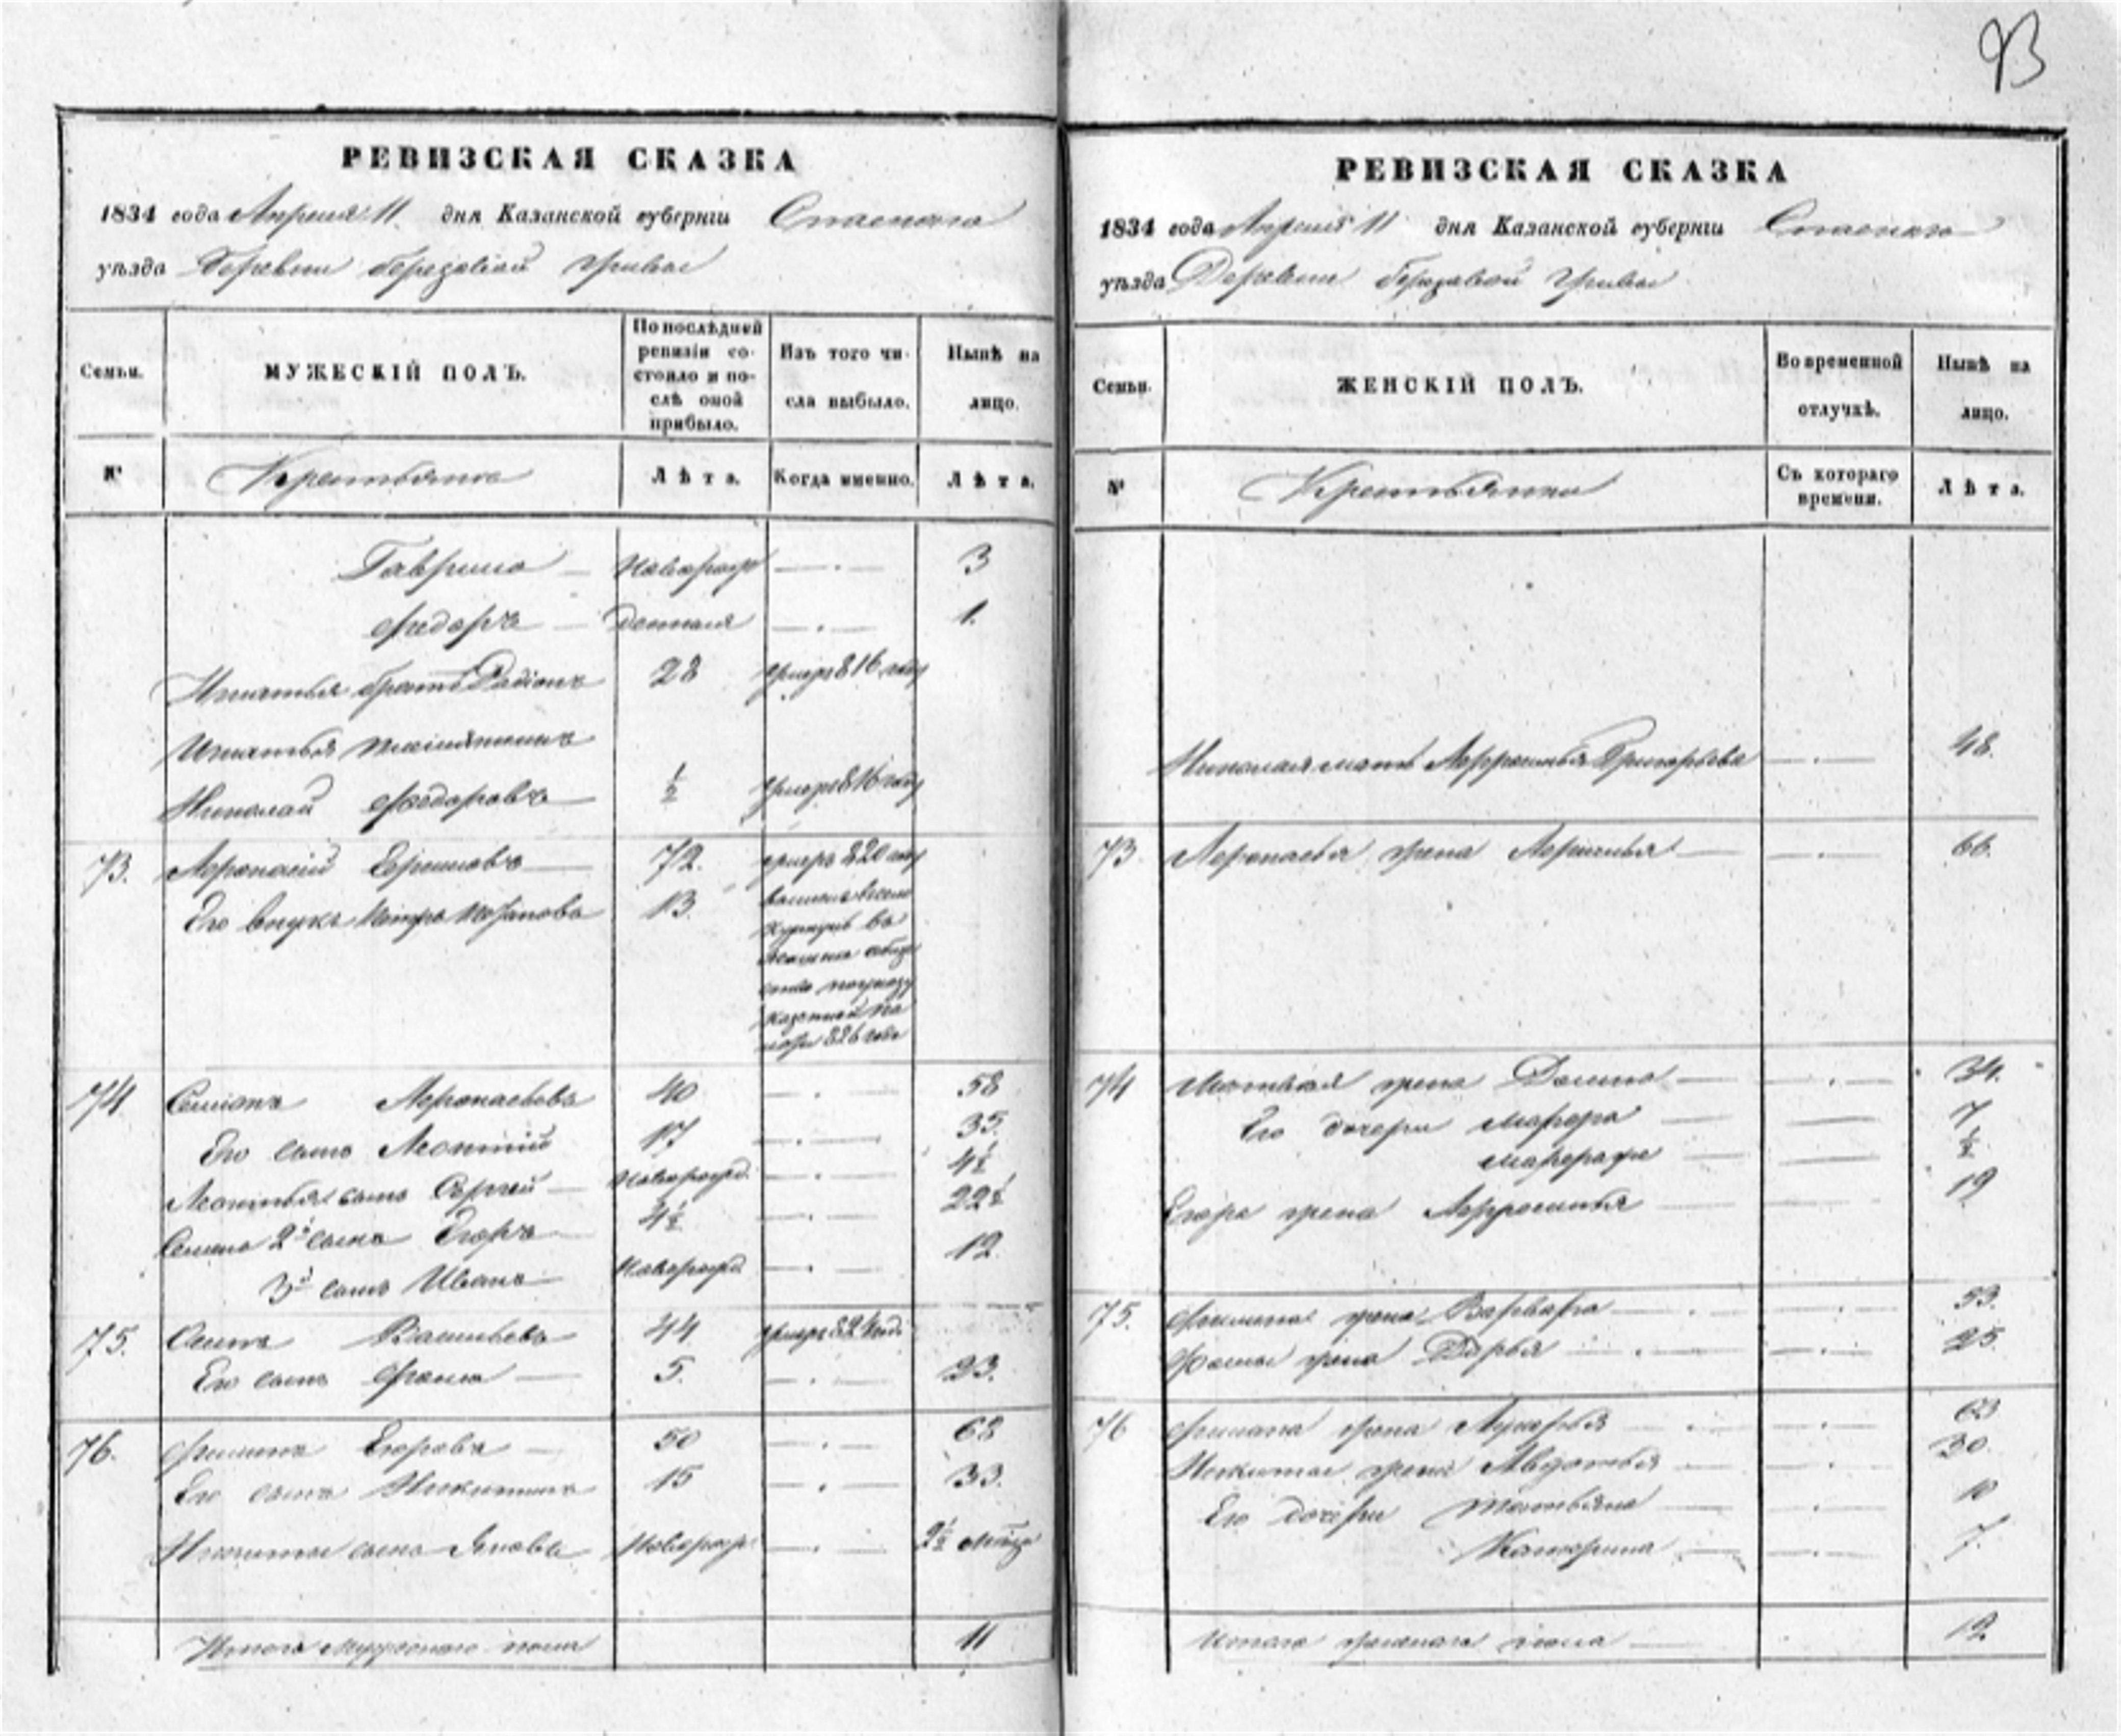 93
РЕВИЗСКАЯ СКАЗКА
1834 года Апреля 11 дня Казанской губерніи Спаскаго
уѣзда Деревни березовой гривы
Семьи.
МУЖЕСКІЙ ПОЛЪ.
По послѣдней ревизіи состояло и послѣ оной прибыло.
Изъ того числа выбыло.
Нынѣ на лицо.
№
Крестьяне
Лѣта.
Когда именно.
Лѣта.
Гаврило Новорож 3
Федоръ денныя 1.
Игнатья братъ Радіонъ 28 816 году
Игнатья
Николай Федоровъ ½ 816 году
73. Афонасій Ефимовъ 72. 820 году
Его внукъ Петръ Потаповъ 13.
по указу
казенной па
латы 826 года
74 Семионъ Афонасьевъ 40 58
Его сынъ Леонтій 17 35.
Леонтья сынъ Сергей Новорожд. 4½
Семиона 2й сынъ Егоръ 4½ 22½
3й сынъ Иванъ Новорожд. 12.
75. Васильевъ 44 824 год.
Его сынъ Фома 5. 23.
76. Филипъ Егоровъ 50 68
Его сынъ Никита 15 33.
Никиты сынъ Яковъ Новорож. 2½
Итого мужескаго пола 11
РЕВИЗСКАЯ СКАЗКА
1834 года Апреля 11 дня Казанской губерніи Спаскаго
уѣзда Деревни березовой гривы
Семьи.
ЖЕНСКІЙ ПОЛЪ.
Во временной отлучкѣ.
Нынѣ на лицо.
№
Крестьянки
Съ котораго времени.
Лѣта.
Николая мать Афросинья Григорьева 48.
73 Афонасья жена Афимья 66.
74 жена Домна 34.
Его дочери Марфа 7
½
Егора жена Афросинья 19
75. жена Варвара 53.
Фомы жена Дарья 25.
76 Филипа жена Лукерья 63
Никиты жена Авдотья 30.
Его дочери Татьяна 10
Катерина 7.
Итого женскаго пола 12